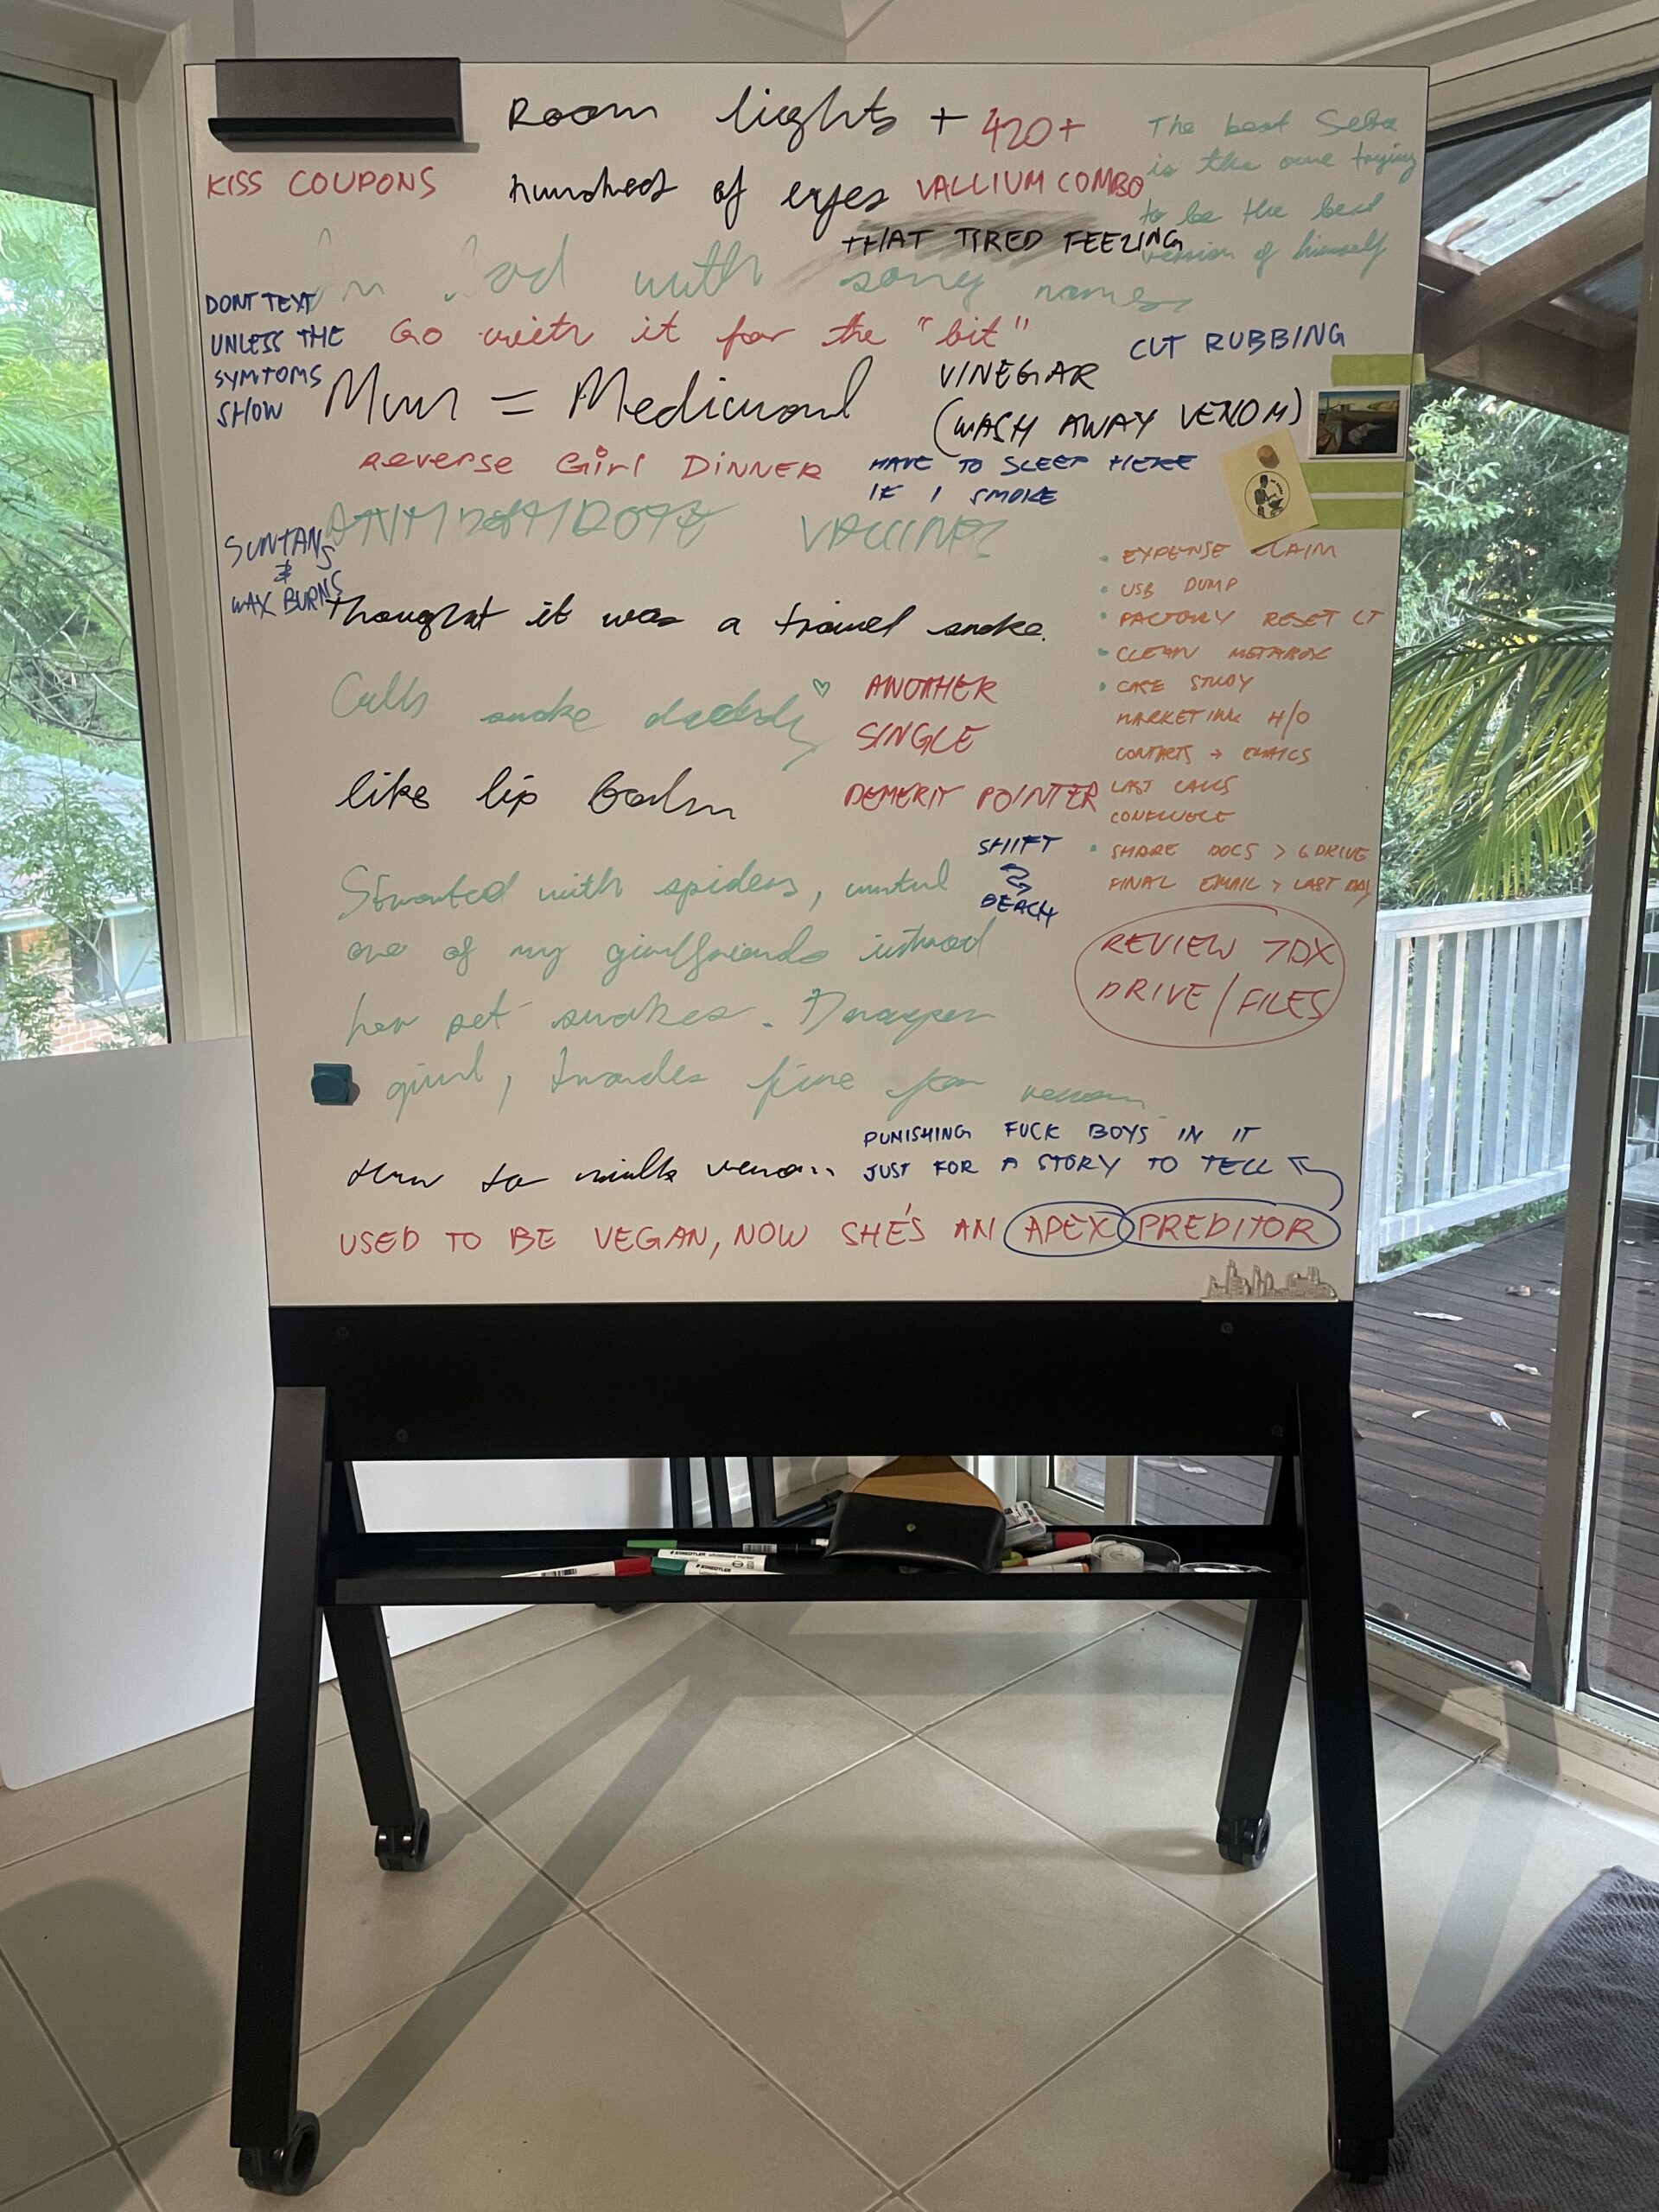 Room lights + 420+
hundred of eyes VALLIUM COMBO
KISS COUPONS
The best Seba
is the one trying
to be the best
version of himself
THAT TIRED FEELING
with song names
DONT TEXT
UNLESS THE
SYMTOMS
SHOW
Go with it for the "bit"
CUT RUBBING
Mum =
VINEGAR
(WASH AWAY VENOM)
Reverse Girl Dinner
HAVE TO SLEEP HERE
IF I SMOKE
SUNTANS
&
WAX BURNS
Thought it was a travel snake.
Calls snake daddy ♡
ANOTHER
SINGLE
DEMERIT POINTER
like lip balm
• EXPENSE CLAIM
• USB DUMP
• FACTORY RESET LT
• CLEAN METABOX
• CASE STUDY
MARKETING H/O
CONTACTS → EMAILS
LAST CALLS
CONFLUECE
• SHARE DOCS > G DRIVE
FINAL EMAIL > LAST DAY
SHIFT
BEACH
REVIEW 7DX
DRIVE / FILES
Started with spiders, until
one of my girlfriends
her pet snakes.
girl, trades fire for venom
How to milk venom
PUNISHING FUCK BOYS IN IT
JUST FOR A STORY TO TELL
USED TO BE VEGAN, NOW SHE'S AN APEX PREDITOR
STAEDTLER
STAEDTLER